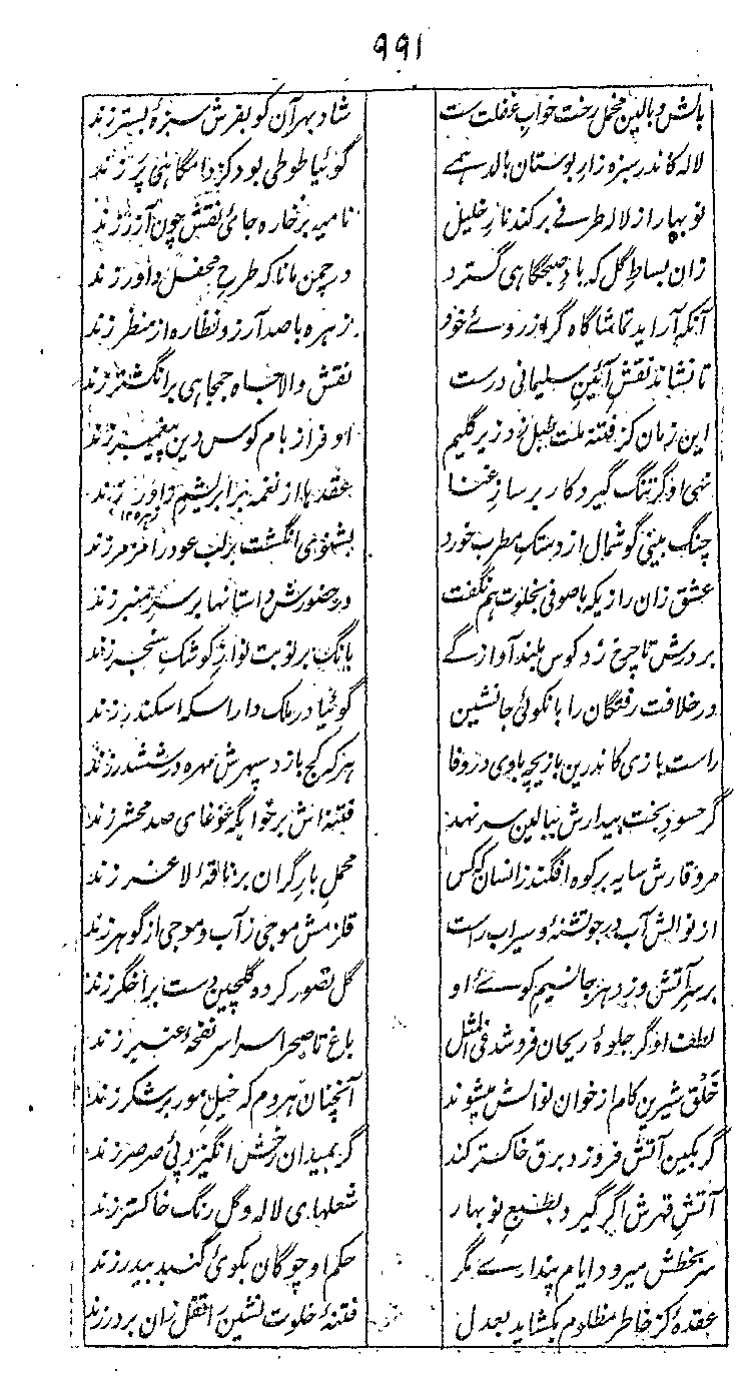 ۹۹۱
بالش و بالین مخمل رخت خواب غفلت ست شاد بهر آن کو بفرش سبزهٔ بستر زند
لاله کاندر سبزه زار بوستان بالد همے گوئیا طوطی بود کز دامگاهی پر زند
نو بهار از لاله طرفے برکند نار خلیل نامیه بر خاره جائ نقش چون آزر زند
زان بساط گل که باد صبحگاهی گسترد در چمن مانا که طرح محفل داور زند
آنکه آراید تماشاگاه گر از روئے خود زهره با صد آرزو نظاره از منظر زند
تا نشاند نقش آئین سلیمانی درست نقش والا جاه جمجاهی بر انگشتر زند
این زمان کز فتنه ملت طبل زد زیر گلیم او فراز بام کوس دین پیغمبر زند
نهی او گر تنگ گیرد کار بر ساز غنا عقدها از نغمه بر ابریشم زاور زند
چنگ بینی گوشمال از دستک مطرب خورد بشنوی انگشت بر لب عود رامزمر زند
عشق زان رازیکه با صوفی بخلوت هم نگفت در حضورش داستانها بر سر منبر زند
بر درش تا چرخ زد کوس بلند آوازگے بانگ بر نوبت نواز کوشک سنجر زند
در خلافت رفتگان را با نکوئی جانشین گوئیا در ملک دارا سکه اسکندر زند
راست بازی کاندرین بازیچه بادی در وفا هر که کج بازد سپهرش مهره در ششدر زند
گر حسود بخت بیدارش ببالین سر نهد فتنه اش بر خوابگه غوغای صد محشر زند
مر وقارش سایه بر کوه افگند زانسان که کس محمل بار گران بر ناقهٔ لاغر زند
از نوالش آب در جو تشنهٔ و سیراب راست قلزمش موجی ز آب و موجی از گوهر زند
بر سر آتش وزد هر جا نسیم کوئے او گل تصور کرده گلچین دست بر اخگر زند
لطف او گر جلوهٔ ریحان فروشد فی المثل باغ تا صحرا سراسر نفحهٔ عنبر زند
خلق شیرین کام از خوان نوالش میشوند آنچنان هر دم که خیل مور بر شکر زند
گر بکین آتش فروزد برق خاکستر کند گر بمیدان رخش انگیزد پئ صرصر زند
آتش قهرش اگر گیرد بطبع نو بهار شعلهای لاله و گل رنگ خاکستر زند
سر بخطش میرود ایام پندارے مگر حکم او چوگان بگوئ گنبد بیدر زند
عقدهٔ کز خاطر مظلوم بگشاید بعدل فتنهٔ خلوت نشین را قفل زان بر در زند